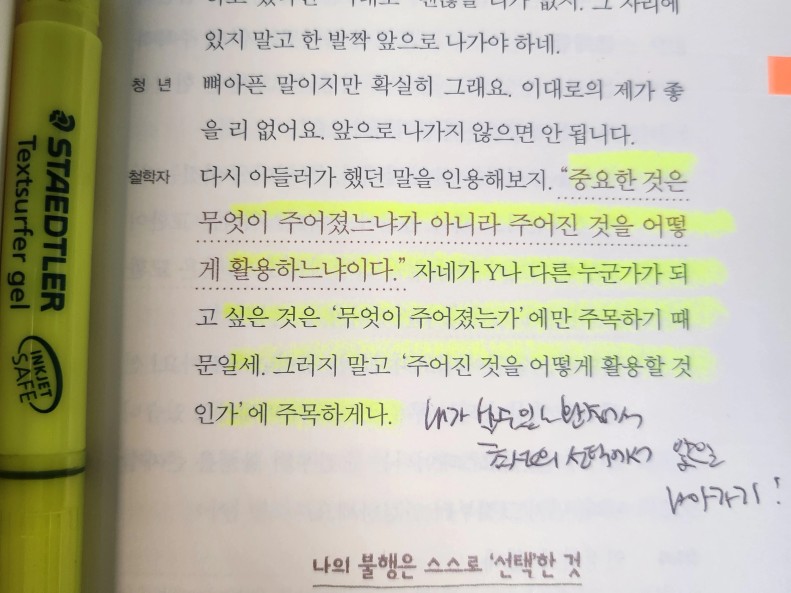 있지 말고 한 발짝 앞으로 나가야 하네.
청 년 뼈아픈 말이지만 확실히 그래요. 이대로의 제가 좋
을 리 없어요. 앞으로 나가지 않으면 안 됩니다.
철학자 다시 아들러가 했던 말을 인용해보지. “중요한 것은
무엇이 주어졌느냐가 아니라 주어진 것을 어떻
게 활용하느냐이다.” 자네가 Y나 다른 누군가가 되
고 싶은 것은 ‘무엇이 주어졌는가’에만 주목하기 때
문일세. 그러지 말고 ‘주어진 것을 어떻게 활용할 것
인가’에 주목하게나.
내가
최선의 선택에서
나아가기!
나의 불행은 스스로 ‘선택’한 것
STAEDTLER
Textsurfer gel
INKJET
SAFE